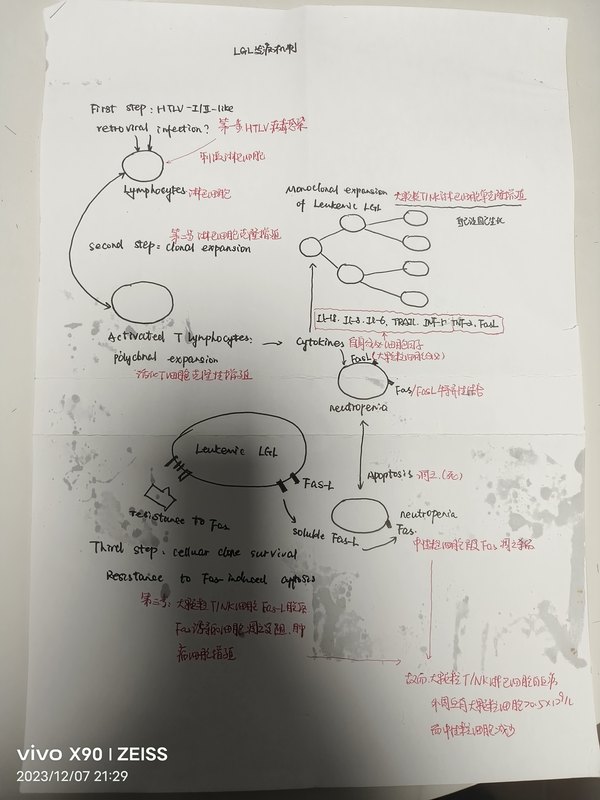 LGL发病机制
First step: HTLV-I/II-like
retroviral infection?
第一步HTLV病毒感染
刺激淋巴细胞
Lymphocytes 淋巴细胞
Monoclonal expansion
of Leukemic LGL
大颗粒T/NK淋巴细胞克隆增殖
第二步 淋巴细胞克隆增殖
second step: clonal expansion
Activated T lymphocytes:
polyclonal expansion
活化T细胞克隆性增殖
Cytokines
FasL
Fas/FasL特异性结合
neutropenia
Leukemic LGL
Fas-L
Apoptosis 凋亡(死)
resistance to Fas
soluble Fas-L
neutropenia
Fas
中性粒细胞
Third step: cellular clone survival
Resistance to Fas-induced
第三步: 大颗粒T/NK细胞Fas-L
Fas诱导的细胞凋亡受阻, 肿
瘤细胞增殖
大颗粒T/NK淋巴细胞
外周血有大颗粒细胞>0.5×10⁹/L
而中性粒细胞减少
vivo X90 | ZEISS
2023/12/07 21:29